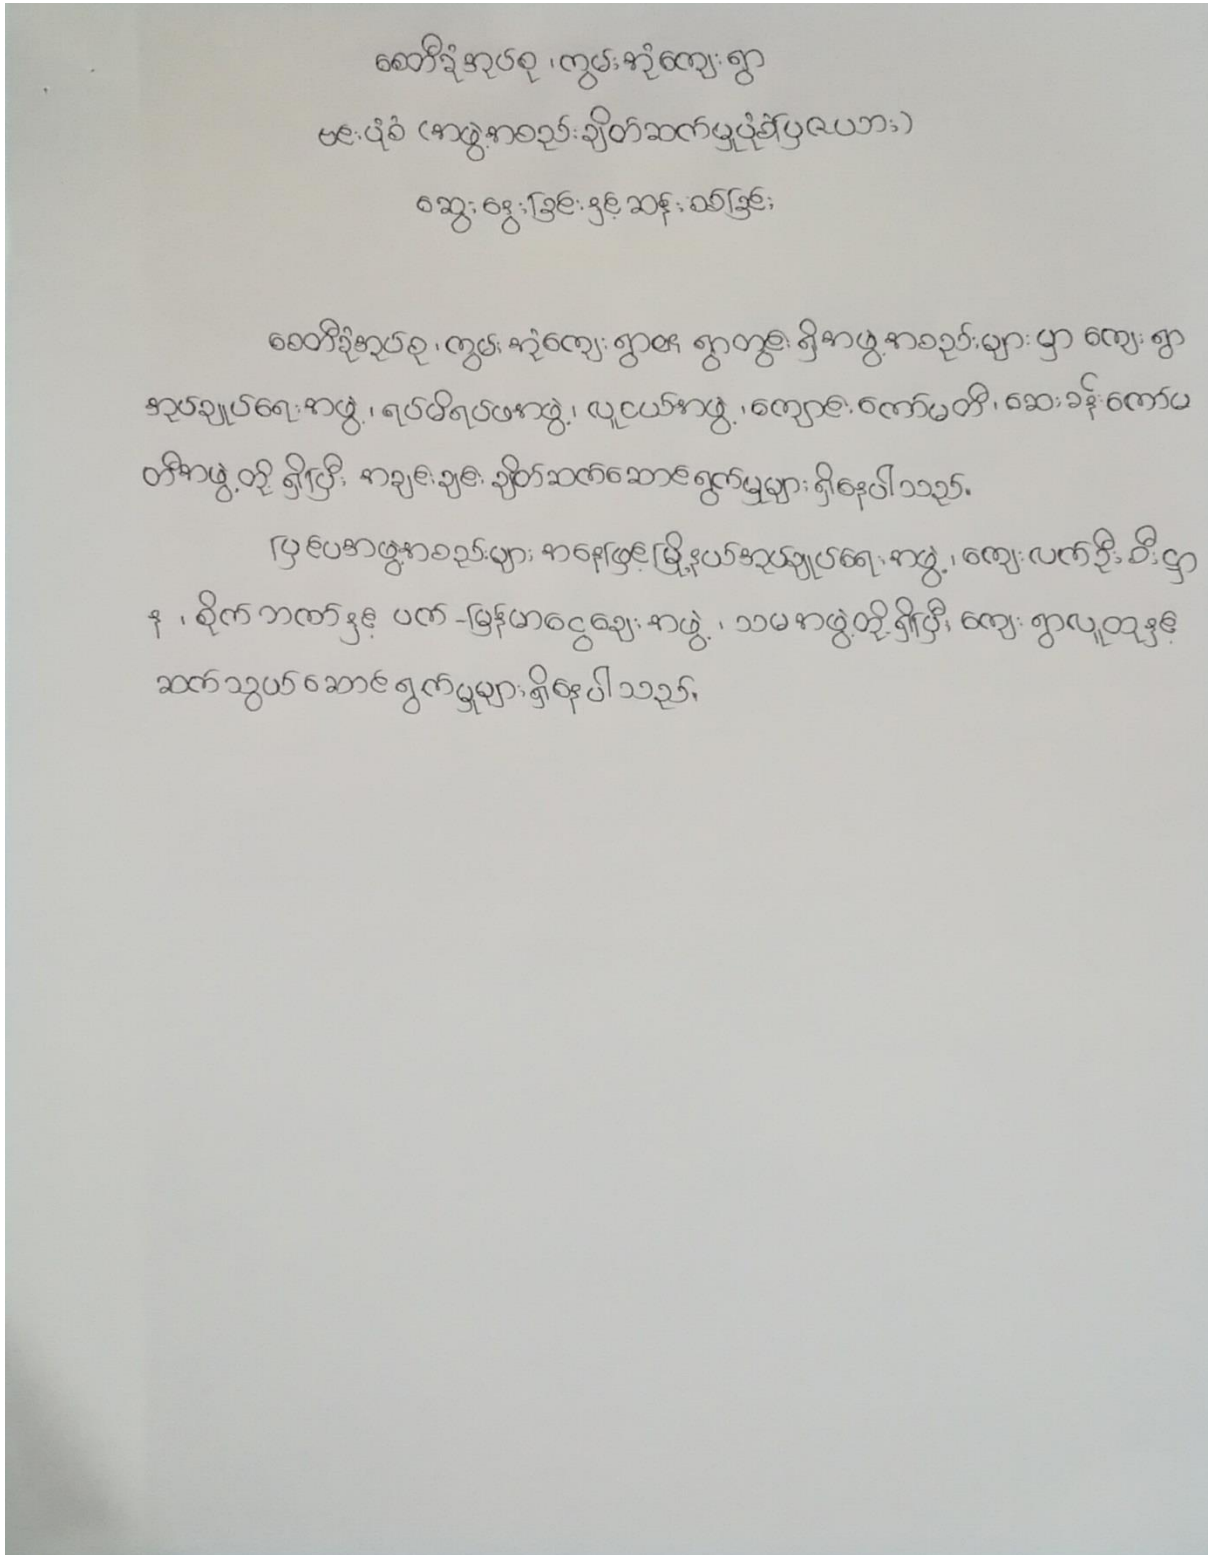 စေတီဒုံအုပ်စု ၊ ကွမ်းအုံကျေးရွာ
ဗင်းပုံစံ (အဖွဲ့အစည်းချိတ်ဆက်မှုပုံစံပြဇယား)
ဆွေးနွေးခြင်းနှင့်ဆန်းစစ်ခြင်း
စေတီဒုံအုပ်စု ၊ ကွမ်းအုံကျေးရွာ၏ ရွာတွင်းရှိအဖွဲ့အစည်းများမှာ ကျေးရွာ
အုပ်ချုပ်ရေးအဖွဲ့ ၊ ရပ်မိရပ်ဖအဖွဲ့ ၊ လူငယ်အဖွဲ့ ၊ ကျောင်းကော်မတီ ၊ ဆေးခန်းကော်မ
တီအဖွဲ့တို့ရှိပြီး အချင်းချင်းချိတ်ဆက်ဆောင်ရွက်မှုများရှိနေပါသည်။
ပြင်ပအဖွဲ့အစည်းများအနေဖြင့်မြို့နယ်အုပ်ချုပ်ရေးအဖွဲ့ ၊ ကျေးလက်ဦးစီးဌာ
န ၊ စိုက်ဘဏ်နှင့် ပက်-မြန်မာငွေချေးအဖွဲ့ ၊ သမအဖွဲ့တို့ရှိပြီး ကျေးရွာလူထုနှင့်
ဆက်သွယ်ဆောင်ရွက်မှုများရှိနေပါသည်။